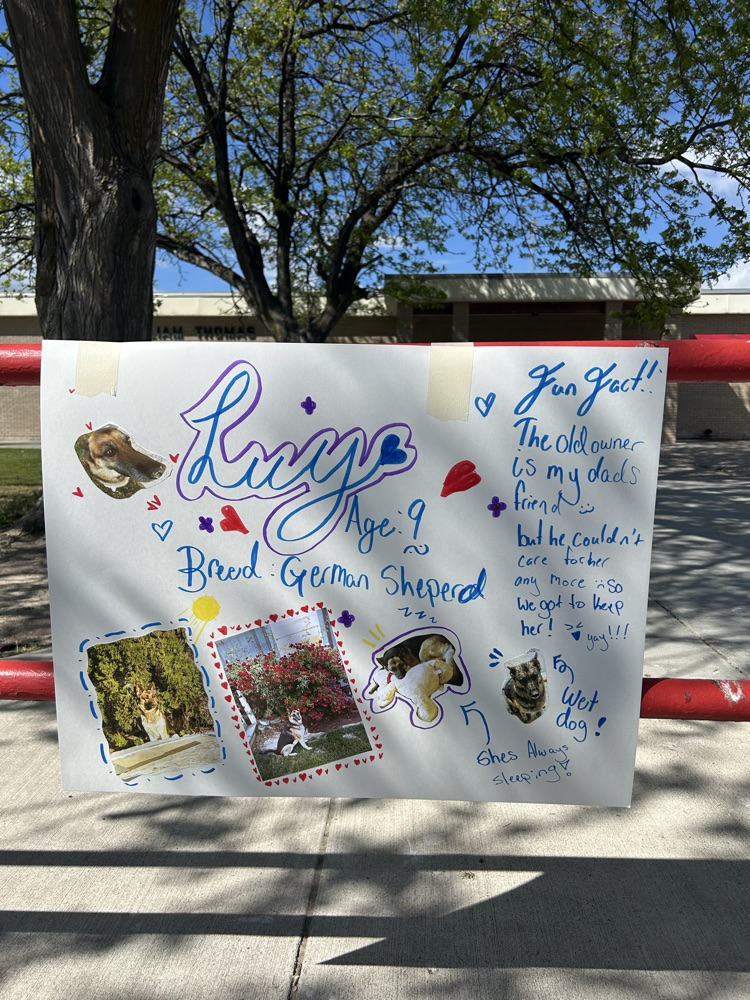 IAM THOMAS
Lucy
Age: 9
Breed: German Sheperd
Fun Fact!!
The old owner
is my dads
friend
but he couldn't
care for her
any more so
we got to keep
her!
yay!!!
zzz
Shes Always
sleeping!
Wet
dog!